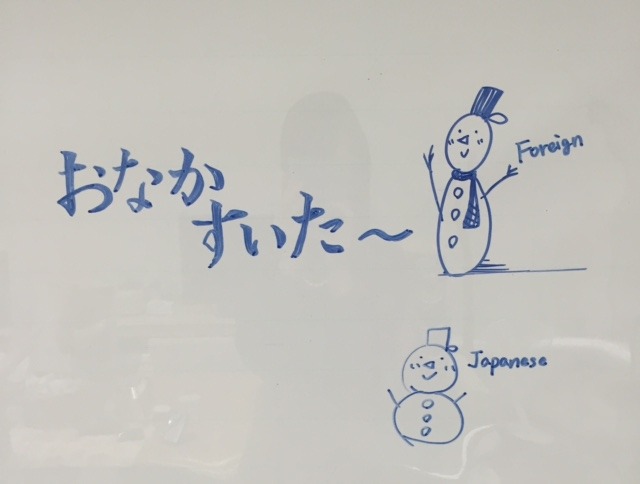 おなか
すいた〜
Foreign
Japanese